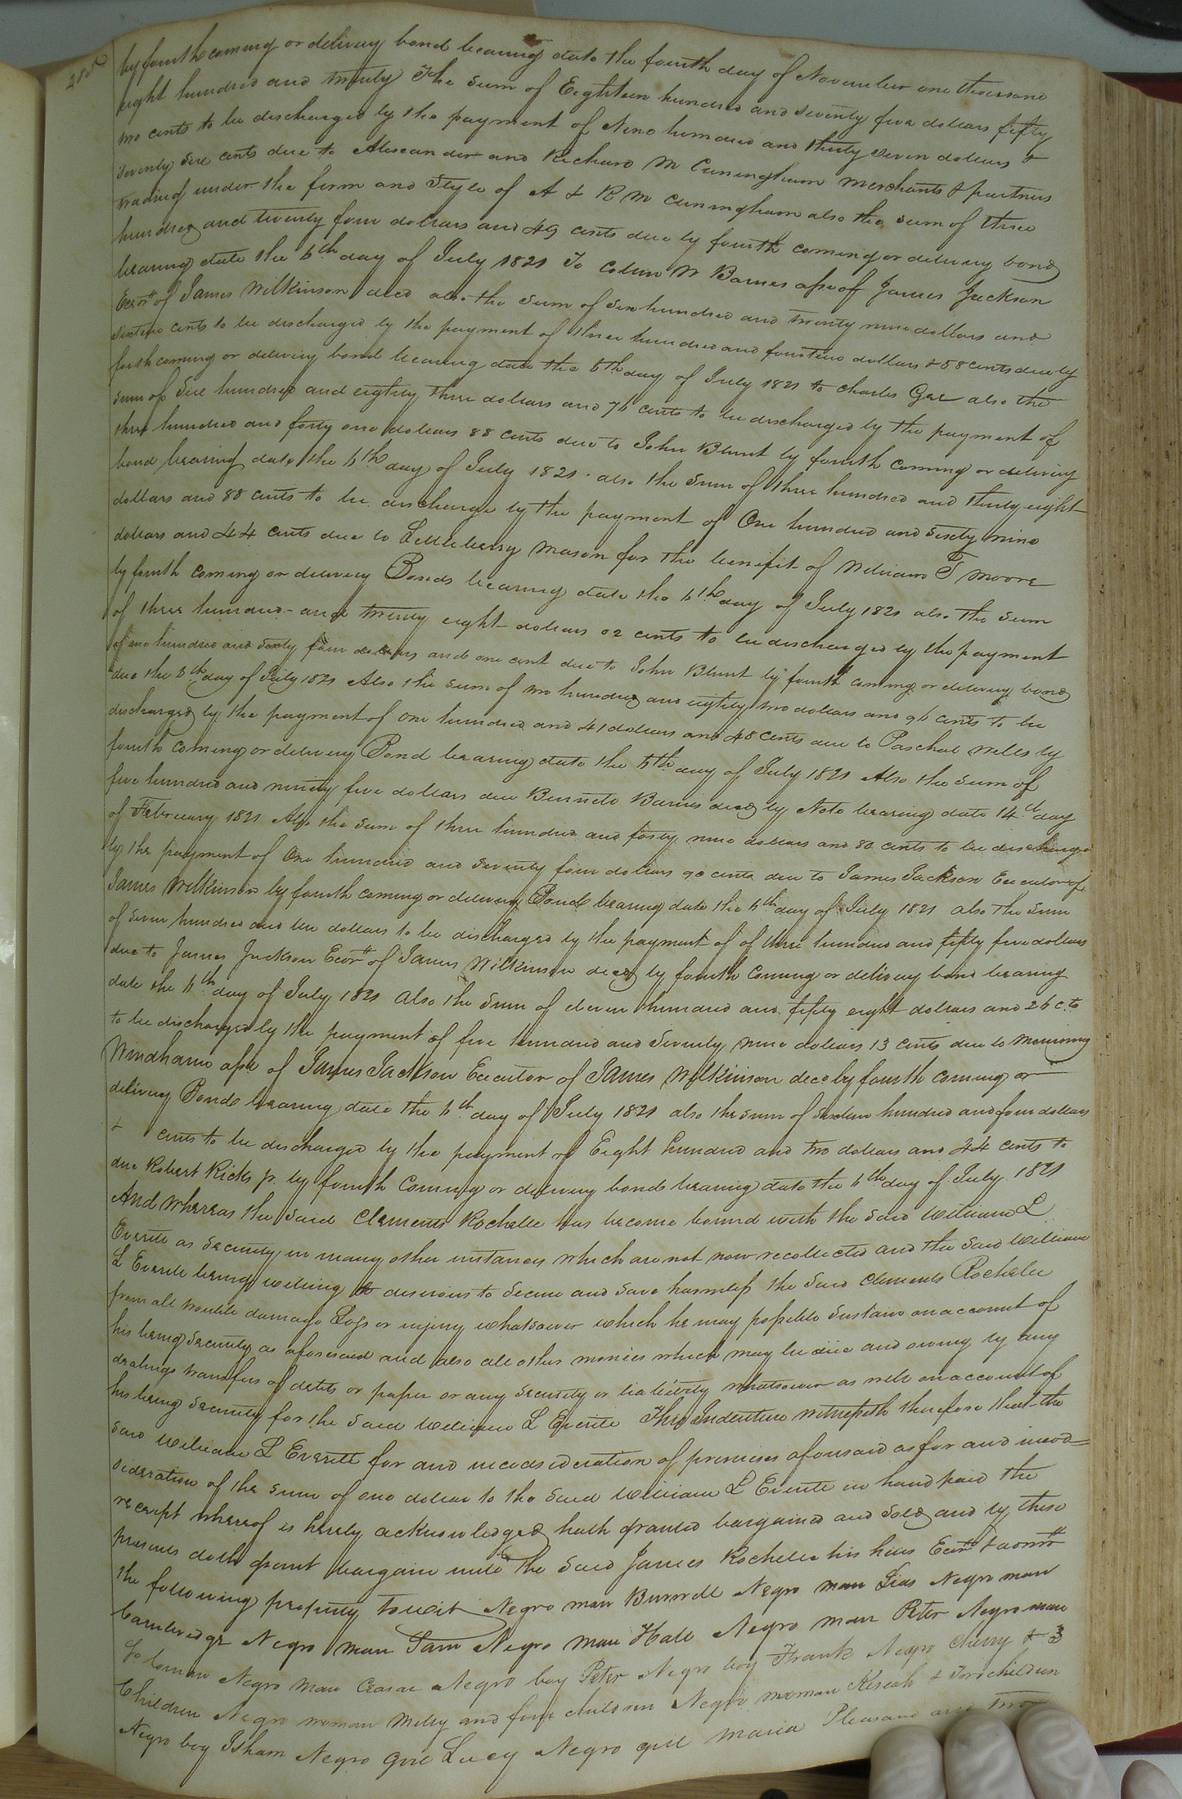 by fourth coming or delivery bond bearing date the fourth day of November one thousand
eight hundred and twenty The sum of Eighteen hundred and seventy five dollars fifty
two cents to be discharged by the payment of Nine hundred and thirty seven dollars &
seventy six cents due to Alexander and Richard M Cuningham merchants & partners
trading under the firm and Style of A & R M Cunningham also the sum of three
hundred and twenty four dollars and 49 cents due by fourth coming or delivery bond
bearing date the 6th day of July 1821 To Colin W Barnes asse of James Jackson
Exor of James Wilkinson decd also the sum of six hundred and twenty nine dollars and
sixteen cents to be discharged by the payment of three hundred and fourteen dollars & 58 cents due by
forthcoming or delivery bond bearing date the 6th day of July 1821 to Charles Gee also the
sum of Six hundred and eighty three dollars and 76 cents to be discharged by the payment of
three hundred and forty one dollars 88 cents due to John Blunt by fourth coming or delivery
bond bearing date the 6th day of July 1821 also the sum of three hundred and thirty eight
dollars and 88 cents to be discharge by the payment of One hundred and sixty nine
dollars and 44 cents due to Littleberry Mason for the benifit of William T Moore
by fourth coming or delivery Bonds bearing date the 6th day of July 1821 also the sum
of three hundred and twenty eight dollars 02 cents to be discharged by the payment
of one hundred and sixty four dollars and one cent due to John Blunt by fourth coming or delivery bond
due the 6th day of July 1821 Also the sum of two hundred and eighty two dollars and 96 cents to be
discharged by the payment of one hundred and 41 dollars and 48 cents due to Paschal Wells by
fourth coming or delivery Bond bearing date the 6th day of July 1821 Also the sum of
five hundred and ninety five dollars due Burwell Barnes decd by Note bearing date 14th day
of February 1821 Also the sum of three hundred and forty nine dollars and 80 cents to be discharged
by the payment of One hundred and seventy four dollars 90 cents due to James Jackson Executor of
James Wilkinson by fourth coming or delivery Bond bearing date the 6th day of July 1821 also the sum
of seven hundred and ten dollars to be discharged by the payment of of three hundred and fifty five dollars
due to James Jackson Exor of James Wilkinson decd by fourth coming or delivery bond bearing
date the 6th day of July 1821 also the sum of eleven hundred and fifty eight dollars and 26 cts
to be discharged by the payment of five hundred and seventy nine dollars 13 cents due to
Windham asse of James Jackson Executor of James Wilkinson decd by fourth coming or
delivery Bonds bearing date the 6th day of July 1821 also the sum of sixteen hundred and four dollars
& cents to be discharged by the payment of Eight hundred and two dollars and 44 cents to
due Robert Ricks jr. by fourth Coming or delivery bonds bearing date the 6th day of July 1821
And Whereas the Said Clements Rochelle has become bound with the said William L
Everitt as security in many other instances which are not now recollected and the said William
L Everitt being willing & desirous to secure and save harmless the said Clements Rochelle
from all trouble damage Loss or injury whatsoever which he may possible sustain on account of
his being security as aforesaid and also all other monies which may be due and owing by any
dealings transfers of debts or paper or any security or liability whatsoever as well on account of
his being security for the said William L Everitt This Indenture witnesseth therefore that the
said William L Everitt for and inconsideration of premises aforesaid as for and incon=
sideration of the sum of one dollar to the said William L Everitt in hand paid the
receipt whereof is hereby acknowledged hath granted bargained and sold and by these
presents doth grant bargain unto the said James Rochelle his heirs Exors & admrs
the following property towit Negro man Burwell Negro man Negro man
Negro man Sam Negro man Hall Negro man Peter Negro man
Solomon Negro man Ceasar Negro boy Peter Negro boy Frank Negro Cherry & 3
Children Negro woman Milly and four children Negro woman Kesiah & Two children
Negro boy Isham Negro girl Lucy Negro girl Maria Pleasant and Two